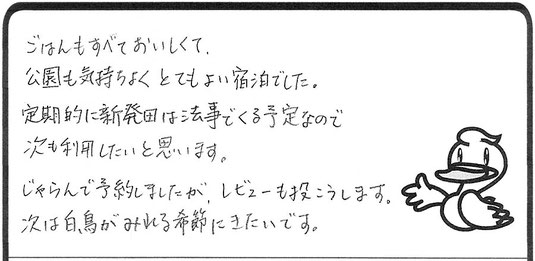 ごはんもすべておいしくて、
公園も気持ちよくとてもよい宿泊でした。
定期的に新発田は法事でくる予定なので
次も利用したいと思います。
じゃらんで予約しましたが、レビューも投こうします。
次は白鳥がみれる季節にきたいです。